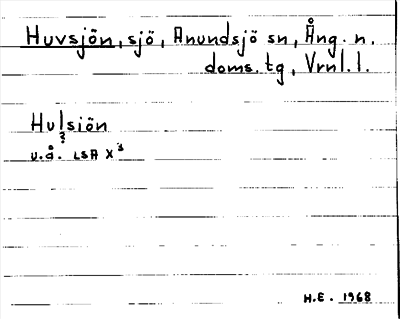 Huvsjön, sjö, Anundsjö sn, Ång. n.
doms. tg, Vrnl. l.
Hulsiön
u.å. LSA X³
H.E. 1968